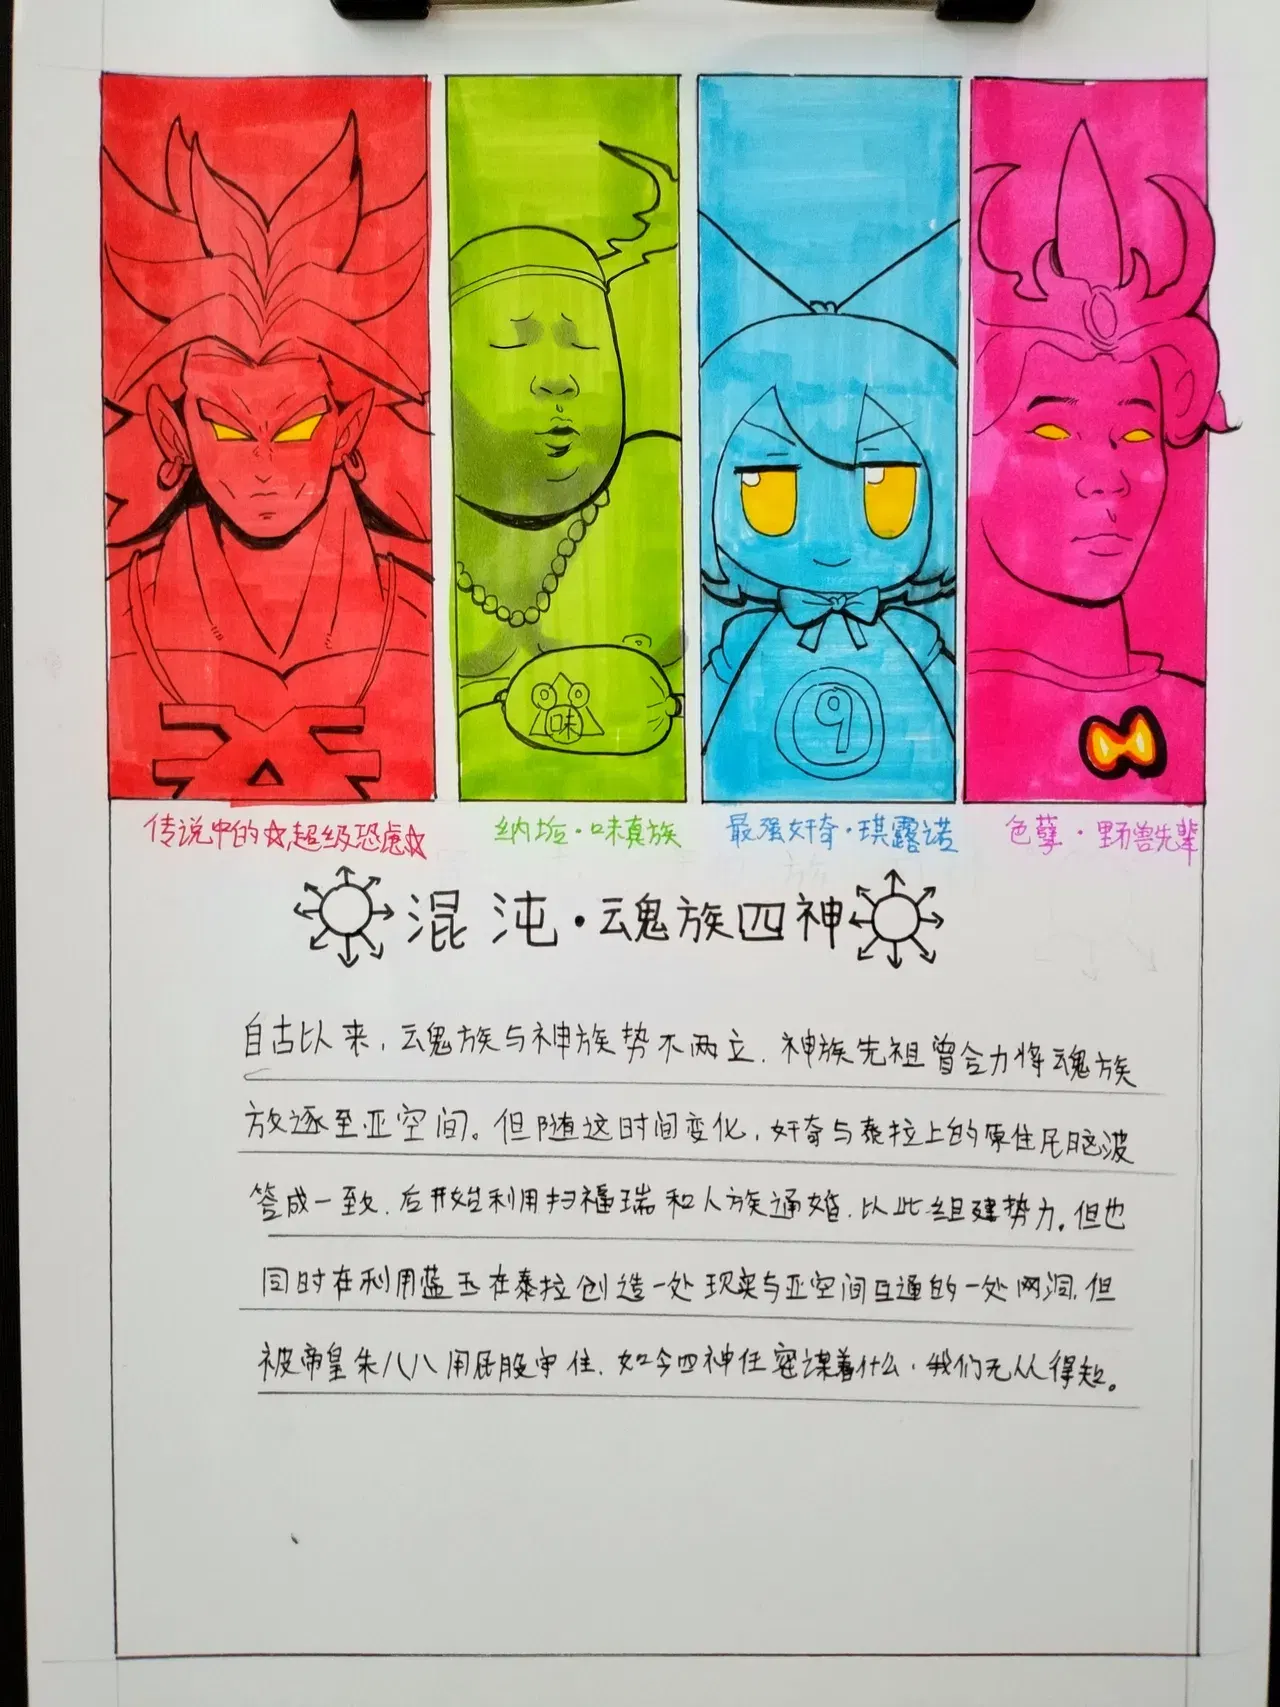 味
9
传说中的☆超级恐虐☆
纳垢·味真族
最强奸奇·琪露诺
色孽·野兽先辈
混沌·魂族四神
自古以来,魂族与神族势不两立.神族先祖曾合力将魂族
放逐至亚空间。但随这时间变化,奸奇与泰拉上的原住民脑波
答成一致.后开始利用扫福瑞和人族通婚.以此组建势力.但也
同时在利用蓝玉在泰拉创造一处现实与亚空间互通的一处网洞.但
被帝皇朱八八用屁股守住.如今四神在密谋着什么.我们无从得知。